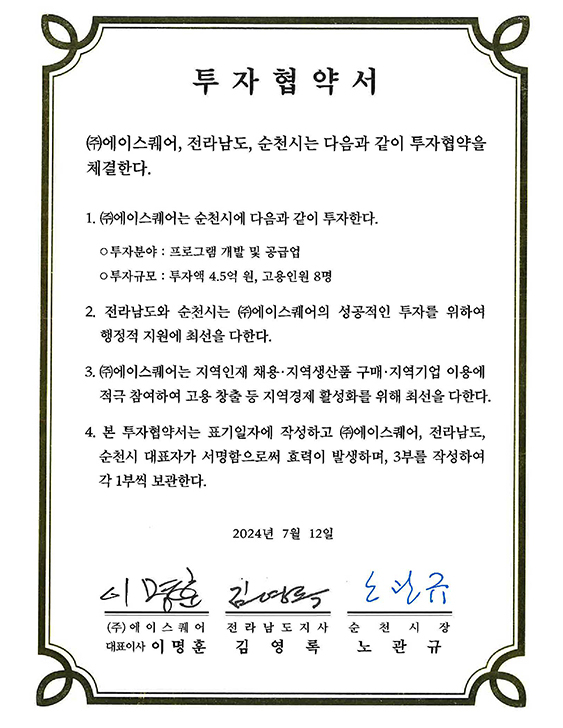 투자협약서
㈜에이스퀘어, 전라남도, 순천시는 다음과 같이 투자협약을
체결한다.
1. ㈜에이스퀘어는 순천시에 다음과 같이 투자한다.
○투자분야 : 프로그램 개발 및 공급업
○투자규모 : 투자액 4.5억 원, 고용인원 8명
2. 전라남도와 순천시는 ㈜에이스퀘어의 성공적인 투자를 위하여
행정적 지원에 최선을 다한다.
3. ㈜에이스퀘어는 지역인재 채용·지역생산품 구매·지역기업 이용에
적극 참여하여 고용 창출 등 지역경제 활성화를 위해 최선을 다한다.
4. 본 투자협약서는 표기일자에 작성하고 ㈜에이스퀘어, 전라남도,
순천시 대표자가 서명함으로써 효력이 발생하며, 3부를 작성하여
각 1부씩 보관한다.
2024년 7월 12일
이명훈 김영록 노관규
(주)에이스퀘어 전라남도지사 순천시장
대표이사 이명훈 김영록 노관규